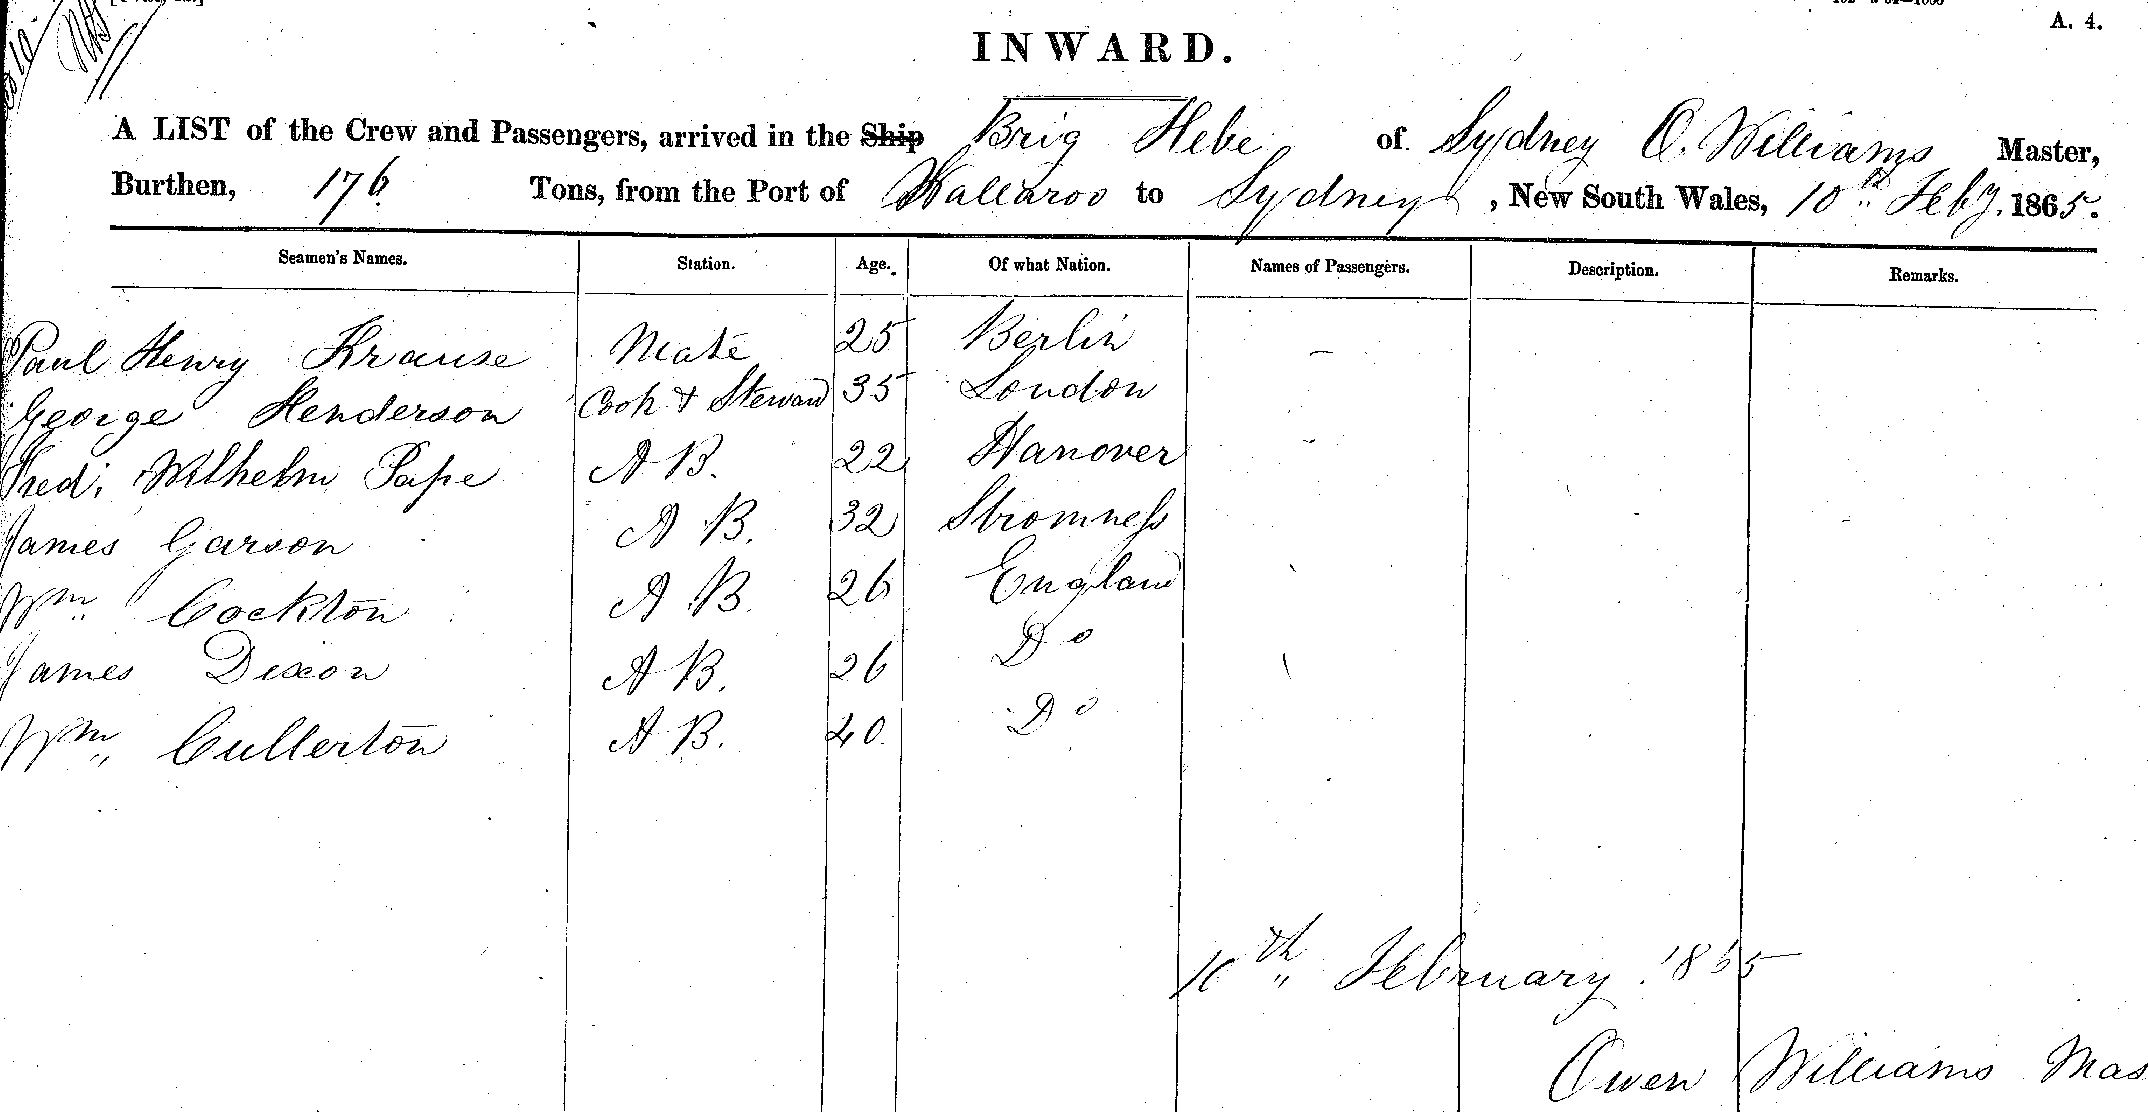 A. 4.
INWARD.
A LIST of the Crew and Passengers, arrived in the Ship Brig Hebe of Sydney O. Williams Master,
Burthen, 176 Tons, from the Port of Wallaroo to Sydney, New South Wales, 10th Feby. 1865.
Seamen's Names. Station. Age. Of what Nation. Names of Passengers. Description. Remarks.
Paul Henry Krause Mate 25 Berlin
George Henderson Cook & Steward 35 London
Fred; Wilhelm Pape A B. 22 Hanover
James Garson A B. 32 Stromness
Wm Cockton A B. 26 England
James Dixon A B. 26 Do
Wm Cullerton A B. 40 Do
10th February 1865
Owen Williams Mas